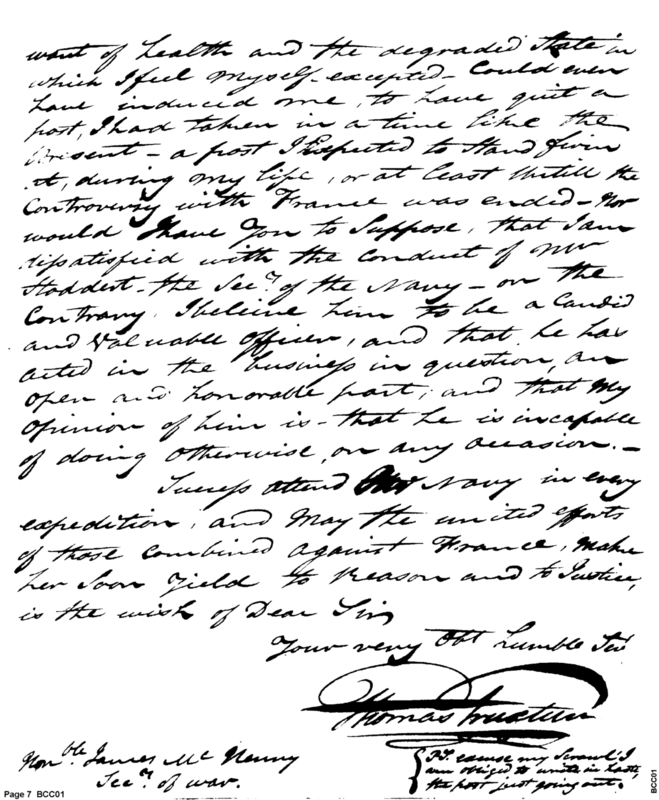 want of health and the degraded State in
which I feel myself excepted - Could even
have induced me, to have quit a
post, I had taken in a time like the
Present - a post I Expected to Stand firm
at, during my life, or at least Untill the
Controversy with France was ended - Nor
would I have You to Suppose, that I am
dissatisfied with the conduct of Mr
Stoddert - the Secy of the Navy - on the
Contrary I beleive him to be a Candid
and Valuable officer, and that he has
acted in the business in question, an
open and honorable part; and that My
Opinion of him is - that he is incapable
of doing Otherwise, on any occasion. -
Success attend Our Navy in every
expedition, and May the united efforts
of those Combined against France, Make
her Soon Yield to Reason and to Justice,
is the wish of Dear Sir
Your very Obt humble Sert
Thomas Truxtun
Honble James Mc Henry
Secy of war.
PS. excuse my Scrawl I
am obliged to write in haste
the post just going out.
Page 7 BCC01
BCC01